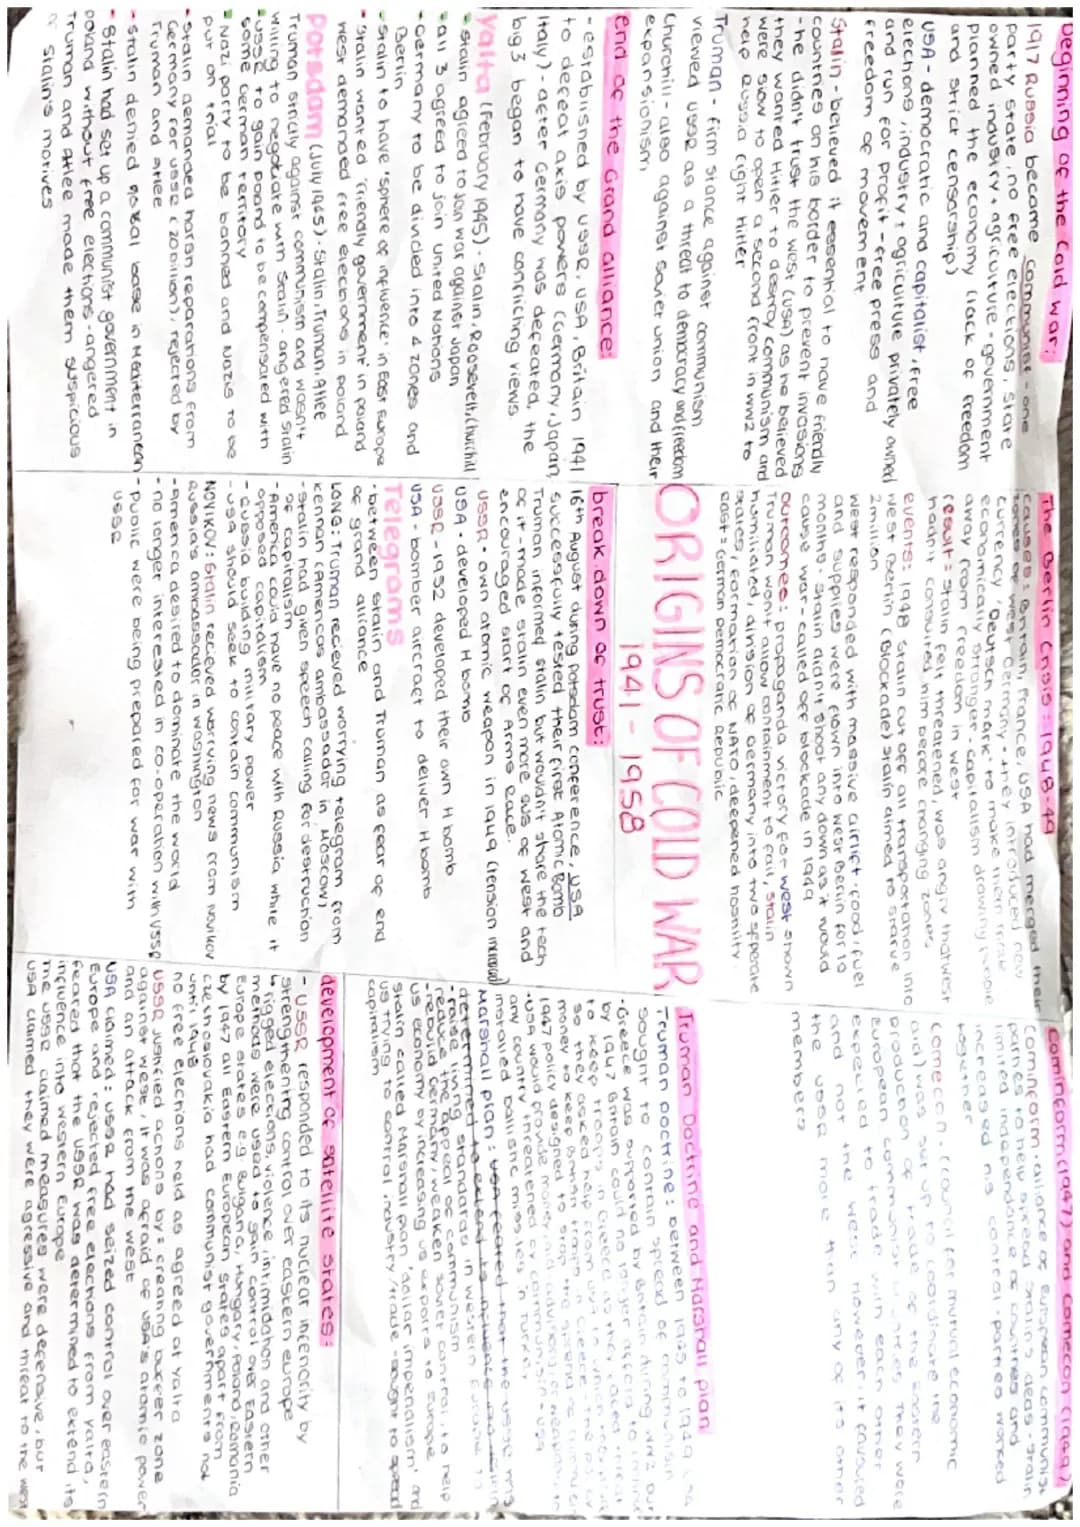 Beginning of the Cold war:
1917 Russia become communist - one
party state, no free elections, state
owned industry + agriculture - government
planned the economy (lack of freedom
and strict censorship)
USA - democratic and capitalist, free
elections, industry + agriculture privately owned
and run for profit - free press and
freedom of movement
Stalin - believed it essential to have friendly
countries on his border to prevent invasions
- he didn't trust the west (USA) as he believed
they wanted Hitler to destroy communism and
were slow to open a second front in WW2 to
help Russia fight Hitler
Truman - firm stance against communism
viewed USSR as a threat to democracy and freedom
Churchill - also against soviet union and their
expansionism
end of the Grand alliance:
- established by USSR, USA, Britain 1941
to defeat axis powers (Germany, Japan
Italy) - after Germany was defeated, the
big 3 began to have conflicting views.
Yalta (February 1945) - Stalin, Roosevelt, Churchill
• Stalin agreed to join war against Japan
• all 3 agreed to join united Nations
• Germany to be divided into 4 zones and
Berlin
- Stalin to have 'sphere of influence' in East Europe
- Stalin wanted 'friendly government' in poland
West demanded free elections in poland
Potsdam (July 1945) - Stalin, Truman, Atlee
Truman strictly against communism and wasn't
willing to negotiate with Stalin - angered Stalin
• USSR to gain poland to be compensated with
some German territory
• Nazi party to be banned and Nazis to be
put on trial
• Stalin demanded harsh reparations from
Germany for USSR (20 billion), rejected by
Truman and Atlee
• Stalin denied naval base in Mediterranean
- Stalin had set up a communist government in
poland without free elections - angered
Truman and Atlee made them suspicious
of Stalin's motives
The Berlin Crisis: 1948-49
causes: Britain, France, USA had merged their
zones of west Germany - they introduced new
currency 'Deutsch mark' to make them more
economically stronger - capitalism drawing people
away from freedom in west
result: Stalin felt threatened, was angry that west
hadn't consulted him before changing zones
events: 1948 Stalin cut off all transportation into
west Berlin (Blockade) Stalin aimed to starve
2million
West responded with massive airlift - food, fuel
and supplies were flown into west Berlin for 10
months. Stalin didn't shoot any down as it would
cause war - called off blockade in 1949
Outcomes: propaganda victory for west shown
Truman wont allow containment to fail, Stalin
humiliated, division of Germany into two separate
states, formation of NATO, deepened hostility
east = German Democratic Republic
ORIGINS OF COLD WAR
1941 - 1958
break down of trust:
16th August during Potsdam conference, USA
successfully tested their first Atomic Bomb
Truman informed Stalin but wouldn't share the tech
of it - made Stalin even more sus of west and
encouraged start of Arms Race.
USSR - own atomic weapon in 1949 (tension increased)
USA - developed H bomb
USSR - 1952 developed their own H bomb
USA - bomber aircraft to deliver H bomb
Telegrams
- between Stalin and Truman as fear of end
of grand alliance
LONG: Truman recieved worrying telegram from
Kennan (Americas ambassador in Moscow)
- Stalin had given speech calling for destruction
of capitalism
- America could have no peace with Russia while it
opposed capitalism
- Russia building military power
- USA should seek to contain communism
NOVIKOV: Stalin recieved worrying news from Novikov
Russia's ambassador in Washington
- America desired to dominate the world
- no longer interested in co-operation with USSR
- public were being prepared for war with
USSR
Cominform (1947) and Comecon (1949)
Cominform - alliance of European communist
parties to help spread Stalin's ideas - Stalin
limited independance of countries and
increased his control - parties worked
together
Comecon - (council for mutual economic
aid) was set up to coordinate the
production of trade of the Eastern
European communist countries. They were
expected to trade with each other
and not the west however, it favoured
the USSR more than any of its other
members
Truman Doctrine and Marshall plan
Truman Doctrine: between 1945 to 1949 USA
sought to contain spread of communism
- Greece was supported by Britain during WW2 but
by 1947 Britain could no longer afford to
keep troops in Greece
1947 policy designed to stop the spread of communism
- USA would provide money
any country threatened by communism - USA
installed ballistic missiles in Turkey
Marshall plan: USA feared that the USSR was
determined to extend its influence
- raise living standards in western Europe
reduce the appeal of communism
- rebuild Germany weaken soviet control, to help
US economy by increasing US exports to Europe
Stalin called Marshall plan 'dollar imperialism' and
US trying to control industry/trade - sought to spread
capitalism
development of satellite states:
- USSR responded to its nuclear inferiority by
strengthening control over eastern europe
↳ rigged elections, violence, intimidation and other
methods were used to gain control over Eastern
Europe states e.g Bulgaria, Hungary, Poland, Romania
by 1947 all Eastern European States apart from
czechoslovakia had communist governments not
until 1948
no free elections held as agreed at Yalta
USSR justified actions by: creating buffer zone
against west, it was afraid of USA's atomic power
and an attack from the west
USA claimed: USSR had seized control over eastern
Europe and rejected free elections from Yalta,
feared that the USSR was determined to extend its
influence into western Europe
The USSR claimed measures were defensive, but
USA claimed they were agressive and threat to the west